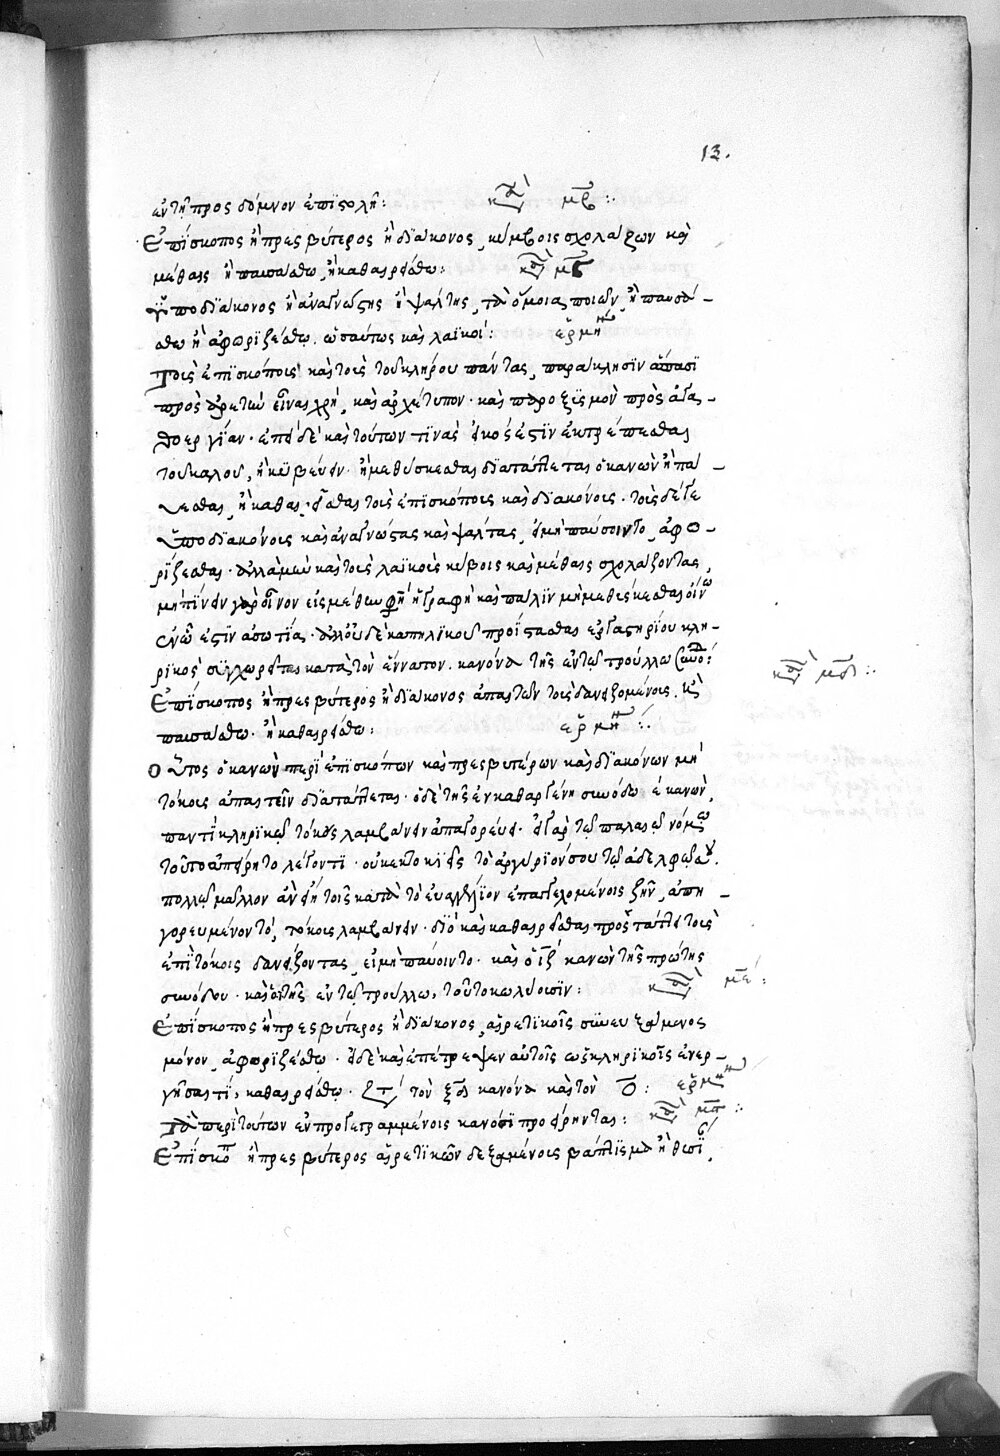 13.
ἐν τῇ πρὸς δόμνον ἐπιστολῇ: κα μβ :
Ἐπίσκοπος ἢ πρεσβύτερος ἢ διάκονος, κύβοις σχολάζων καὶ
μέθαις ἢ παυσάσθω, ἢ καθαιρείσθω: κα μγ
Ὑποδιάκονος ἢ ἀναγνώστης ἢ ψάλτης, τὰ ὅμοια ποιῶν, ἢ παυσά-
σθω ἢ ἀφοριζέσθω. ὡσαύτως καὶ λαϊκοί: ἑρμη
Τοῖς ἐπισκόποις καὶ τοῖς τοῦ κλήρου πάντας, παράκλησιν ἅπασι
πρὸς ἀρετὴν εἶναι χρή, καὶ ἀρχέτυπον. καὶ παροξισμὸν πρὸς ἀγα-
θοεργίαν. ἐπεὶ δὲ καὶ τούτων τινὰς εἰκός ἐστιν ἐκτρέπεσθαι
τοῦ καλοῦ, ἢ κυβεύειν. ἢ μεθύσκεσθαι διατάττεται ὁ κανὼν ἢ παύ-
εσθαι, ἢ καθαιρεῖσθαι τοὺς ἐπισκόποις καὶ διακόνοις. τοὶς δέ γε
ὑποδιακόνοις καὶ ἀναγνώστας καὶ ψάλτας, εἰ μὴ παύσοιντο, ἀφο-
ρίζεσθαι. ἀλλὰ μὴν καὶ τοὶς λαϊκοὶς κύβοις καὶ μέθαις σχολάζοντας,
μὴ πίνειν γὰρ οἶνον εἰς μέθην φησὶ ἡ γραφὴ καὶ πάλιν μὴ μεθύσκεσθαι οἴνῳ
ἐν ᾧ ἐστὶν ἀσωτία. ἀλλ' οὐδὲ καπηλικοῦ προΐστασθαι ἐργαστηρίου κλη-
ρικοὶς συγχωρεῖται κατὰ τὸν ἔννατον κανόνα τῆς ἐν τῷ τρούλλῳ συνόδ: κα μδ :
Ἐπίσκοπος ἢ πρεσβύτερος ἢ διάκονος ἀπαιτῶν τοὶς δανειζομένοις, ἢ
παυσάσθω. ἢ καθαιρείσθω: ἑρμη :
Οὗτος ὁ κανὼν περὶ ἐπισκόπων καὶ πρεσβυτέρων καὶ διακόνων μὴ
τόκοις ἀπαιτεῖν διατάττεται. ὁ δὲ τῆς ἐν καθαργένῃ συνόδῳ ε κανὼν,
παντὶ κληρικῷ τόκοις λαμβάνειν ἀπαγορεύει. εἰ γὰρ τῷ παλαιῷ νόμῳ
τοῦτο ἀπείρητο λέγοντι. οὐκ ἐκτοκιεῖς τὸ ἀργύριόν σου τῷ ἀδελφῷ σου.
πολλῷ μᾶλλον ἂν εἴη τοῖς κατὰ τὸ εὐαγγέλιον ἐπαγγελομένοις ζῆν, ἀπη-
γορευμένον τὸ, τόκοις λαμβάνειν. διὸ καὶ καθαιρεῖσθαι προστάττει τοὶς
ἐπὶ τόκοις δανείζοντας, εἰ μὴ παύοιντο. καὶ ὁ ιζ κανὼν τῆς πρώτης
συνόδου. καὶ ὁ ι τῆς ἐν τῷ τρούλλῳ, τοῦτο κωλύουσιν: κα με :
Ἐπίσκοπος ἢ πρεσβύτερος ἢ διάκονος, αἱρετικοῖς συνευξάμενος
μόνον, ἀφοριζέσθω. εἰ δὲ καὶ ἐπέτρεψεν αὐτοῖς ὡς κληρικοῖς ἐνερ-
γῆσαι τί, καθαιρείσθω. ζτ τὸν ξδ κανόνα καὶ τὸν ο: ἑρμη
Τὰ περὶ τούτων ἐν προγεγραμμένοις κανόσι προείρηνται: κα μϛ :
Ἐπίσκοπ ἢ πρεσβύτερος αἱρετικῶν δεξαμένοις βάπτισμα ἢ θυσί,